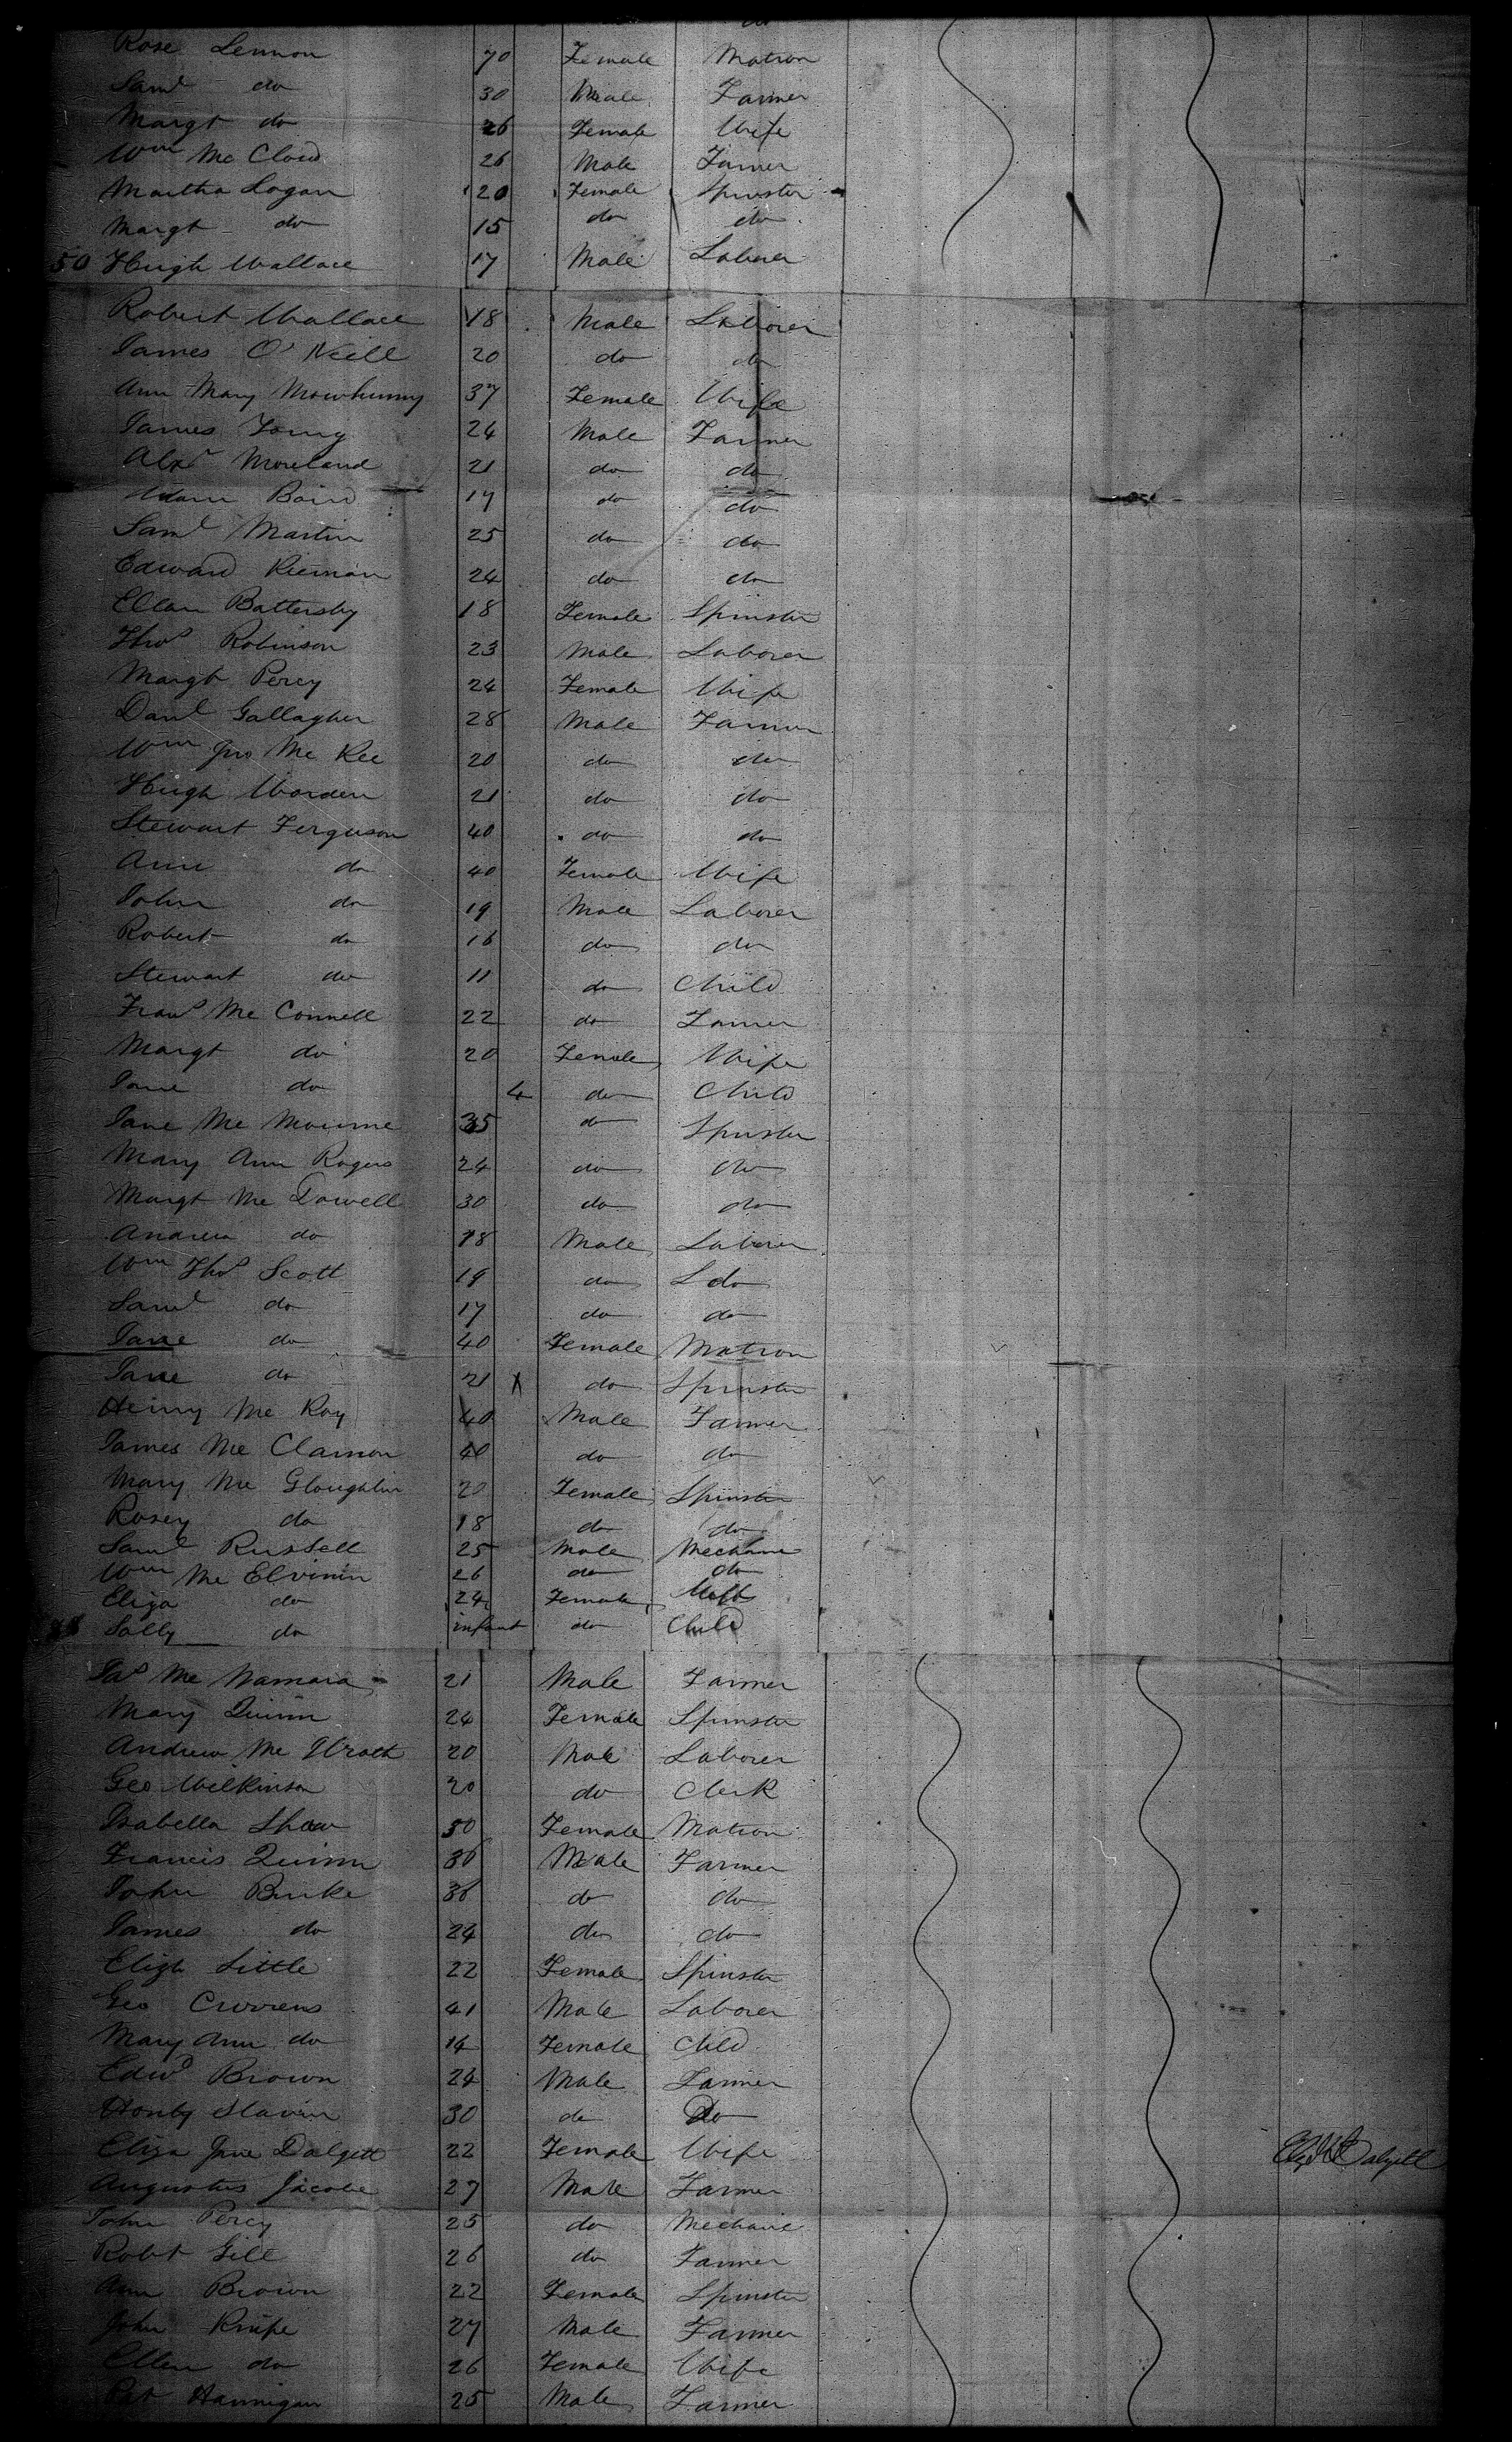 do
Rose Lennon 70 Female Matron
Saml do 30 Male Farmer
Margt do 26 Female Wife
Wm Mc Cloud 26 Male Farmer
Martha Logan 20 Female Spinster
Margt do 15 do do
50 Hugh Wallace 17 Male Laborer
Robert Wallace 18 Male Laborer
James O'Neill 20 do do
Ann Mary Mawhinny 37 Female Wife
James 24 Male Farmer
Alexr Moreland 21 do do
Adam Baird 17 do do
Saml Martin 25 do do
Edward Kiernan 24 do do
Ellan Battersby 18 Female Spinster
Thos Robinson 23 Male Laborer
Margt Percy 24 Female Wife
Danl Gallagher 28 Male Farmer
Wm Jno Mc Kee 20 do do
Hugh Warden 21 do do
Stewart Ferguson 40 do do
Ann do 40 Female Wife
John do 19 Male Laborer
Robert do 16 do do
Stewart do 11 do Child
Frans Mc Connell 22 do Farmer
Margt do 20 Female Wife
Jane do 4 do Child
Jane Mc Mourne 35 do Spinster
Mary Ann Rogers 24 do do
Margt Mc Dowell 30 do do
Andrew do 18 Male Laborer
Wm Thos Scott 19 do L do
Saml do 17 do do
Jane do 40 Female Matron
Jane do 21 X do Spinster
Henry Mc Kay 40 Male Farmer
James Mc Clamon 40 do do
Mary Mc Gloughlin 20 Female Spinster
Rosey do 18 do do
Saml Russell 25 Male Mechanic
Wm Mc Elvinin 26 do do
Eliza do 24 Female Wife
Sally do infant do Child
Jas Mc Namara 21 Male Farmer
Mary Quinn 24 Female Spinster
Andrew Mc Wrath 20 Male Laborer
Geo Wilkinson 20 do Clerk
Isabella Shaw 50 Female Matron
Francis Quinn 36 Male Farmer
John Burke 36 do do
James do 24 do do
Elizh Little 22 Female Spinster
Geo Currens 41 Male Laborer
Mary Ann do 14 Female Child
Edwd Brown 24 Male Farmer
Slavin 30 do Do
Eliza Jane Dalzell 22 Female Wife Dalzell
Augustus Jacobe 27 Male Farmer
John Percy 25 do Mechanic
Robt Gill 26 do Farmer
Ann Brown 22 Female Spinster
John Knipe 27 Male Farmer
Ellen do 26 Female Wife
Pat Hannigan 25 Male Farmer